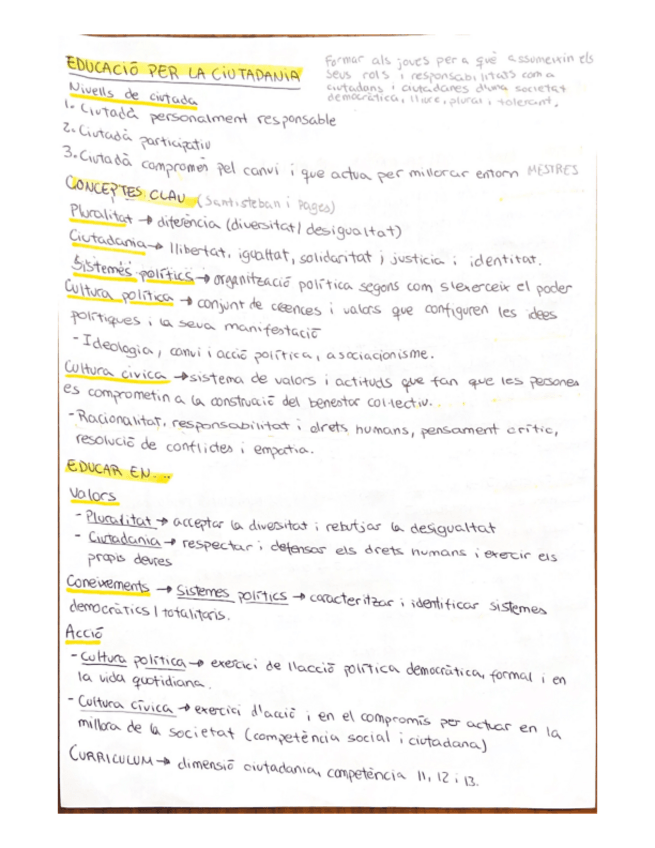 EDUCACIÓ PER LA CIUTADANIA
Formar als joves per a què assumeixin els
seus rols i responsabilitats com a
ciutadans i ciutadanes d'una societat
democràtica, lliure, plural i tolerant.
Nivells de ciutadà
1. Ciutadà personalment responsable
2. Ciutadà participatiu
3. Ciutadà compromès pel canvi i que actua per millorar entorn MESTRES
CONCEPTES CLAU (Santisteban i Pagès)
Pluralitat → diferència (diversitat/desigualtat)
Ciutadania → llibertat, igualtat, solidaritat i justícia i identitat.
Sistemes polítics → organització política segons com s'exerceix el poder
Cultura política → conjunt de creences i valors que configuren les idees
polítiques i la seva manifestació
- Ideologia, canvi i acció política, associacionisme.
Cultura cívica → sistema de valors i actituds que fan que les persones
es comprometin a la construcció del benestar col·lectiu.
- Racionalitat, responsabilitat i drets humans, pensament crític,
resolució de conflictes i empatia.
EDUCAR EN...
Valors
- Pluralitat → acceptar la diversitat i rebutjar la desigualtat
- Ciutadania → respectar i defensar els drets humans i exercir els
propis deures
Coneixements → Sistemes polítics → caracteritzar i identificar sistemes
democràtics / totalitaris.
Acció
- Cultura política → exercici de l'acció política democràtica, formal i en
la vida quotidiana.
- Cultura cívica → exercici d'acció i en el compromís per actuar en la
millora de la societat (competència social i ciutadana)
CURRICULUM → dimensió ciutadania, competència 11, 12 i 13.